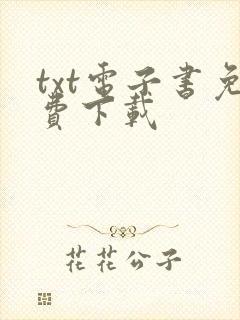 txt電子書免
費下載
花花公子